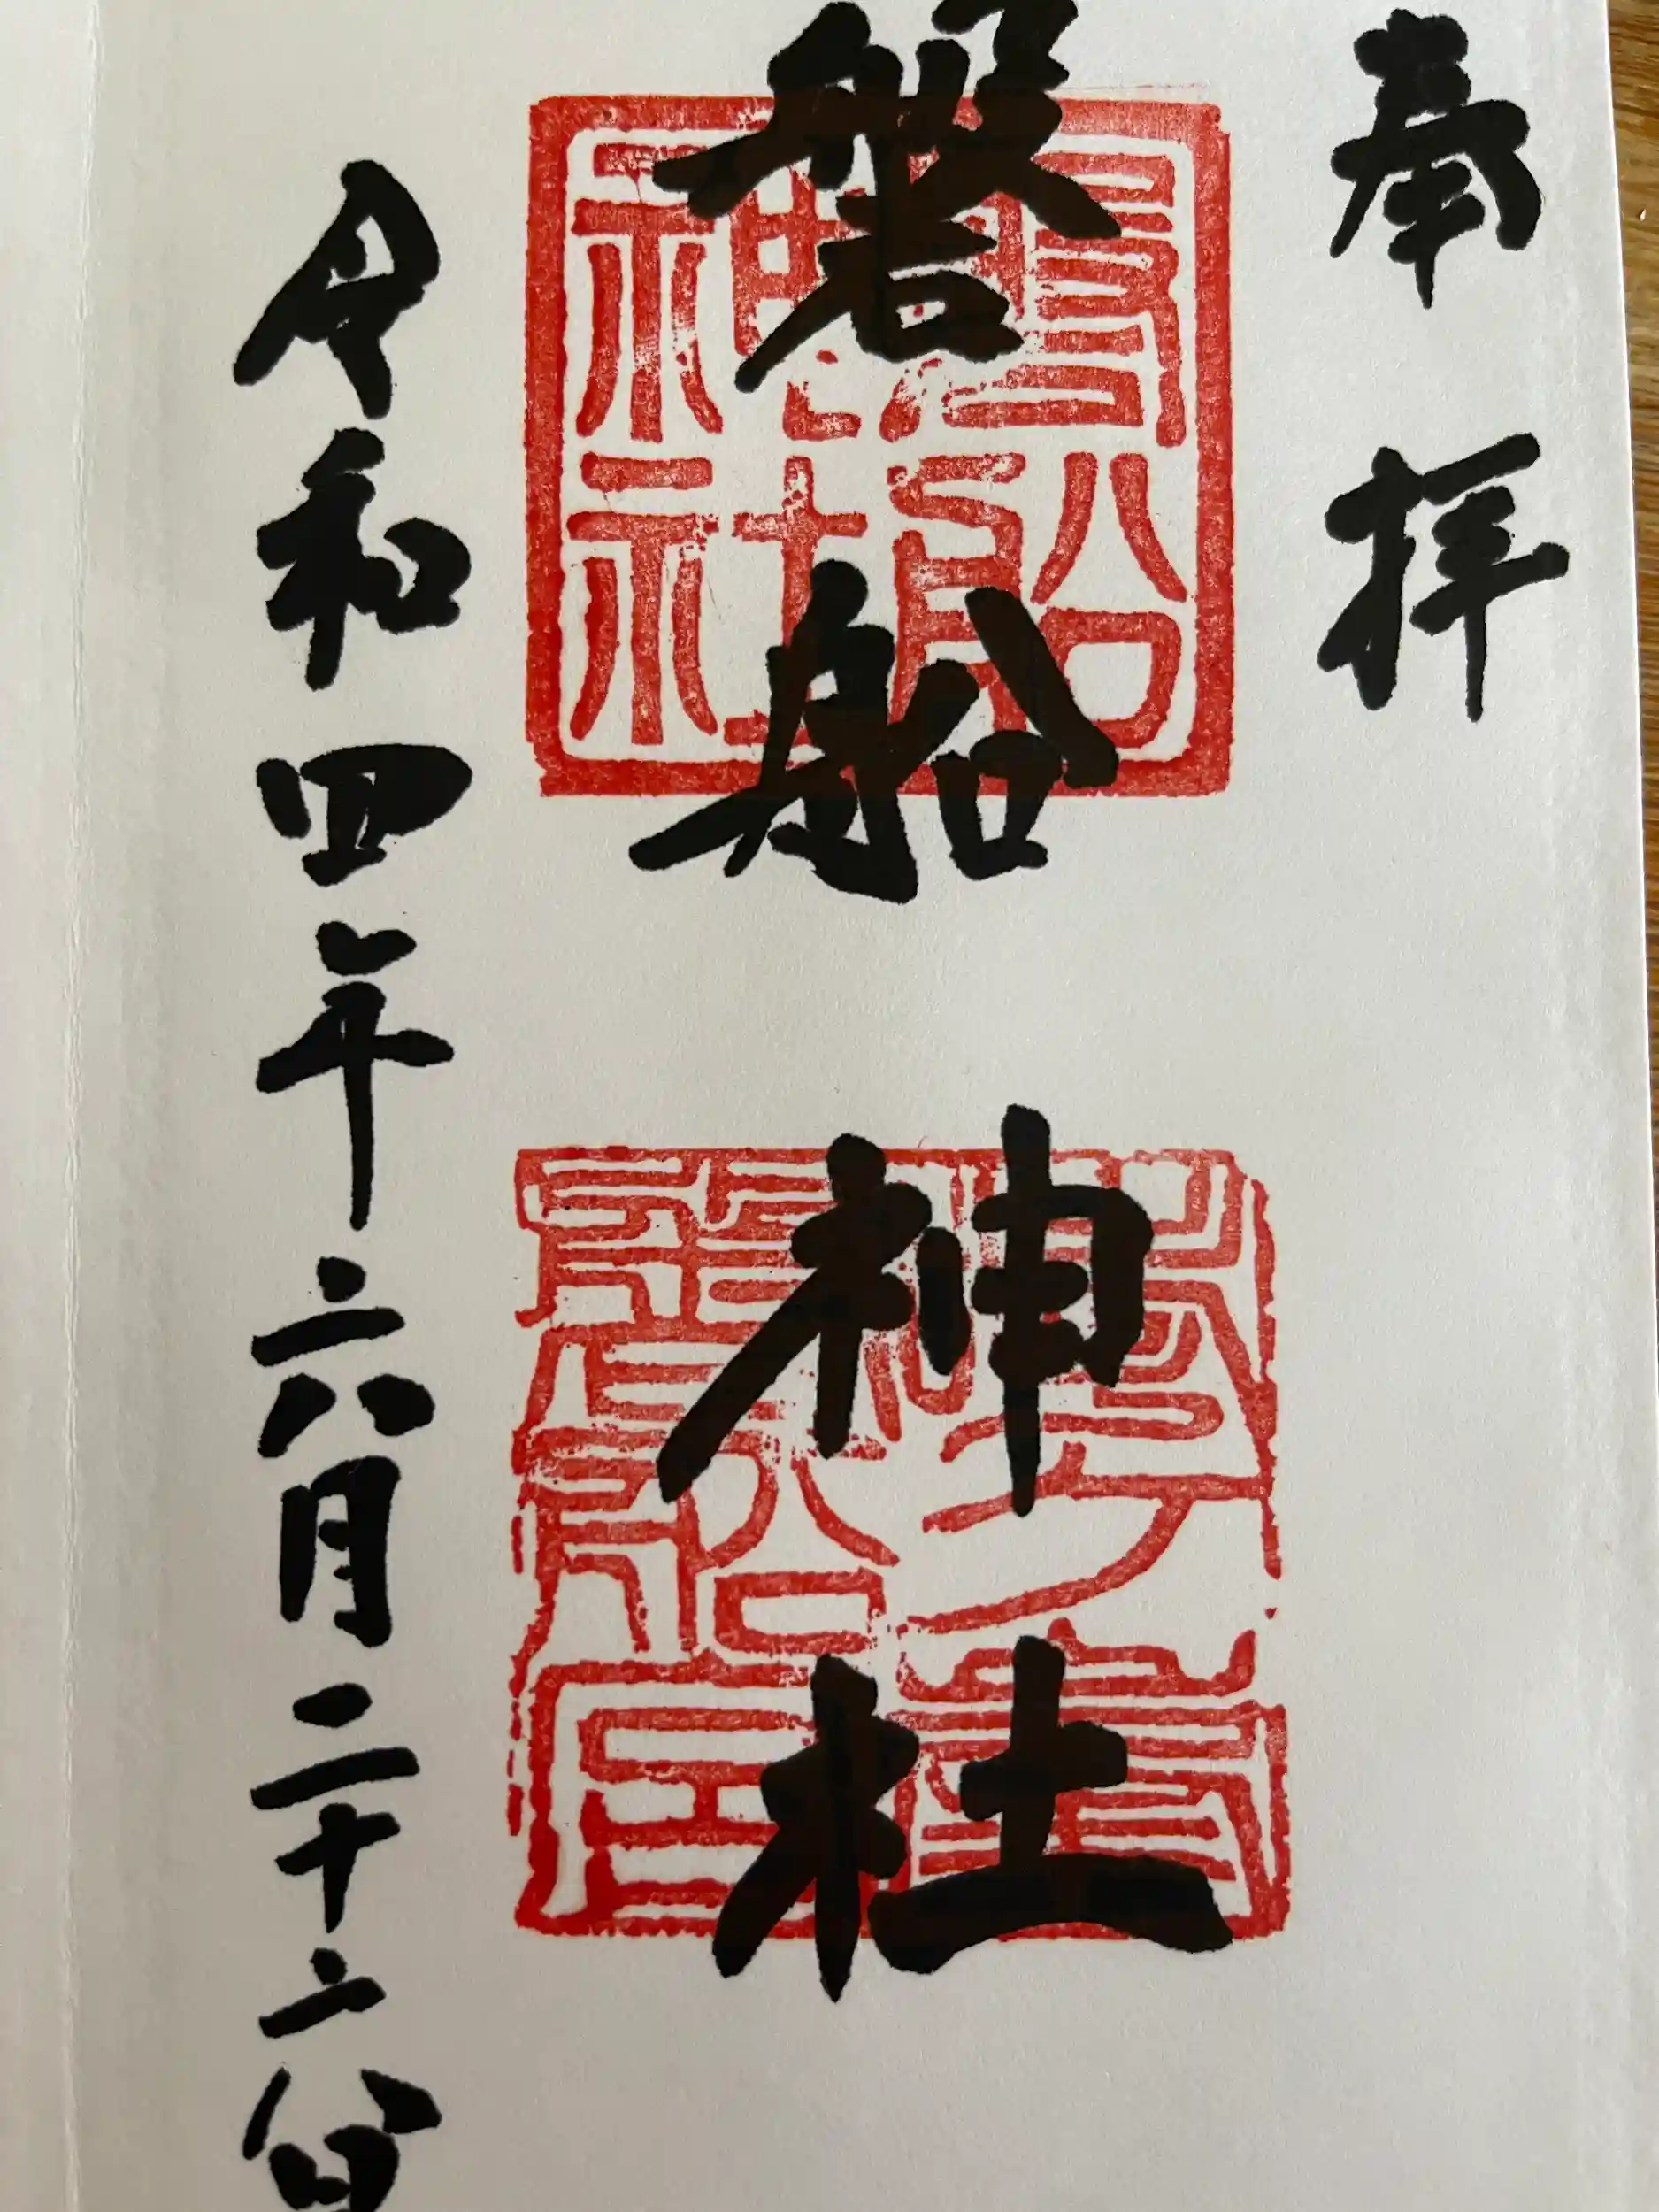 奉拝
磐船神社
令和四年六月二十六日
磐船神社